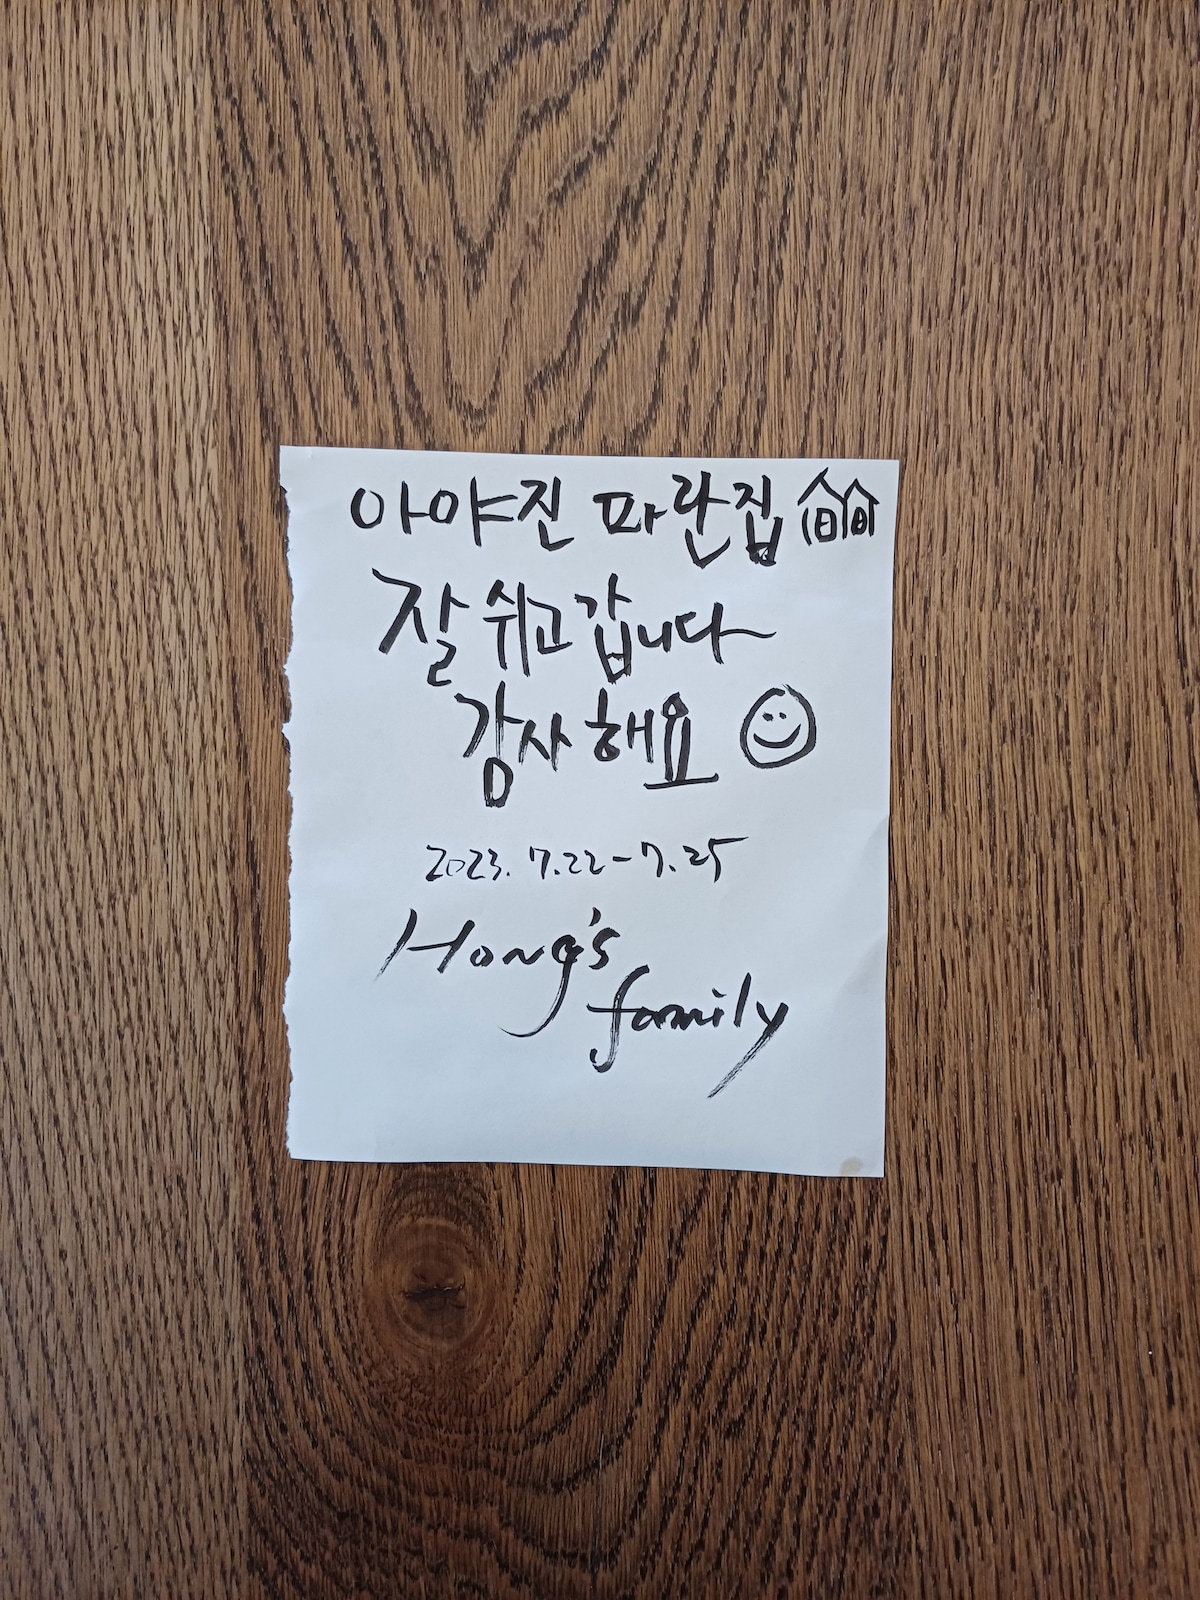 아야진 파란집
잘 쉬고 갑니다
감사해요
2023. 7.22-7.25
Hong's
family